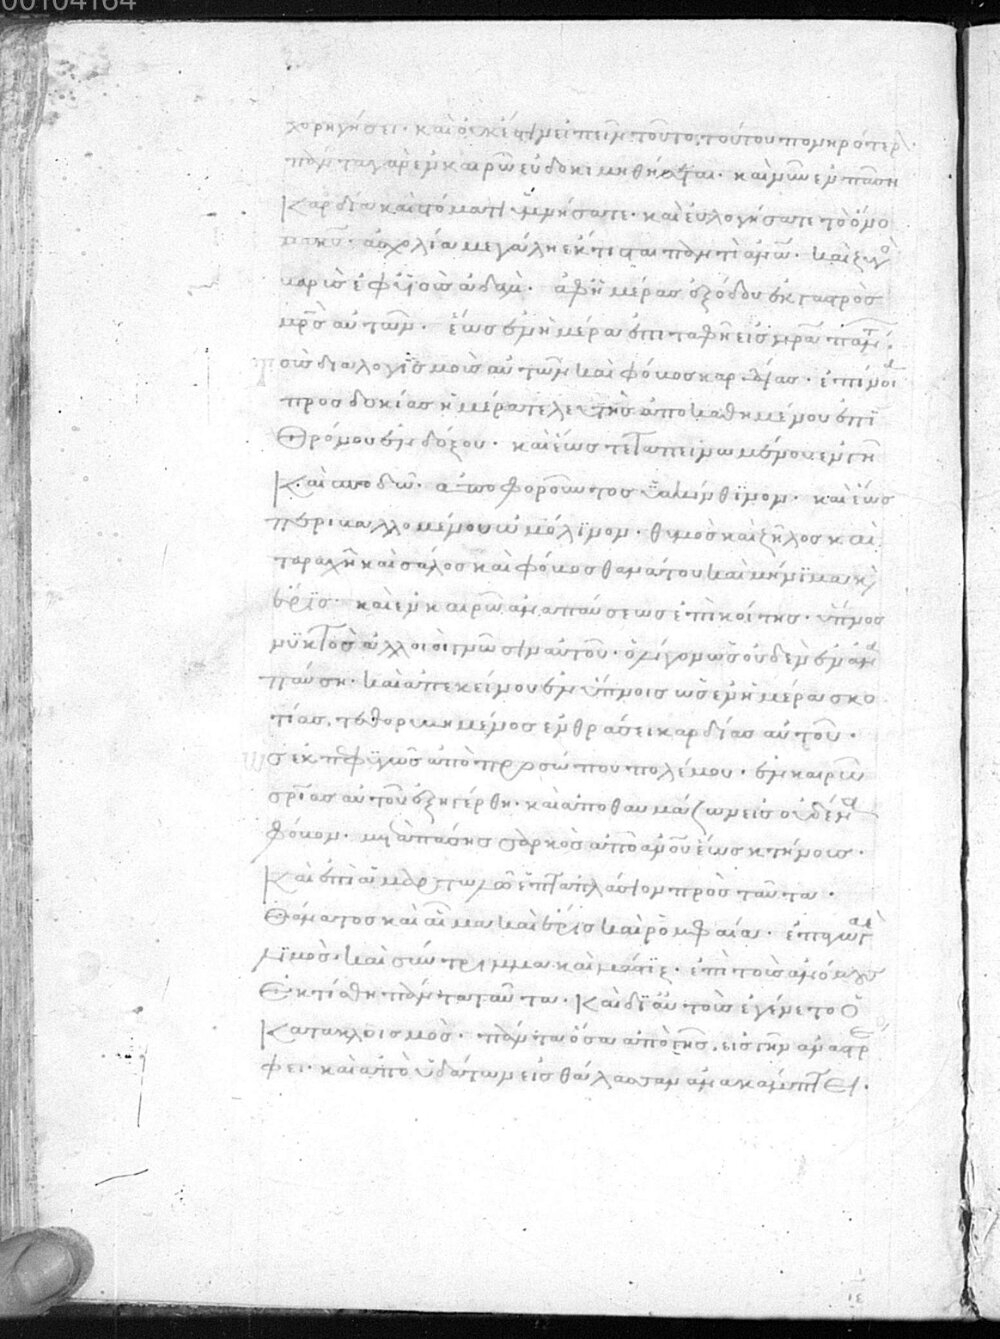 00104164
χορηγήσει· καὶ οὐκ ἔστιν εἰπεῖν τοῦτο τούτου πονηρότερον
πάντα γὰρ ἐν καιρῷ εὐδοκιμηθήσεται· καὶ νῦν ἐν πάσῃ
Καρδίᾳ καὶ στόματι ὑμνήσατε· καὶ εὐλογήσατε τὸ ὄνομα
κυ· ἀσχολία μεγάλη ἔκτισται παντὶ ἀνω· καὶ ζυγὸς
βαρὺς ἐφ υἱοῖς ἀδάμ· ἀφ ἡμέρας ἐξόδου ἐκ γαστρὸς
μρς αὐτῶν· ἕως ἐν ἡμέρα ἐπιταφῆ εἰς μρα πάντων·
τοὺς διαλογισμοὺς αὐτῶν καὶ φόβος καρδίας· ἐπίνοια
προσδοκίας ἡμέρα τελευτῆς ἀπὸ καθημένου ἐπὶ
Θρόνου ἐν δόξῃ· καὶ ἕως τεταπεινωμένου ἐν γῆ
Καὶ σποδῶ· ἀπὸ φοροῦντος ὑακίνθινον· καὶ ἕως
περιβαλλομένου ὠμόλινον· θυμὸς καὶ ζῆλος καὶ
ταραχὴ καὶ σάλος καὶ φόβος θανάτου καὶ μήνιμα καὶ
ἔρις· καὶ ἐν καιρῶ ἀναπαύσεως ἐπὶ κοίτης· ὕπνος
νυκτὸς ἀλλοιοῖ γνῶσιν αὐτοῦ· ὀλίγον ὡς οὐδὲν ἐν ἀνα
παύσει· καὶ ἀπ ἐκείνου ἐν ὕπνοις ὡς ἐν ἡμέρα σκο
πίας· τεθορυβημένος ἐν ὁράσει καρδίας αὐτοῦ·
ὡς ἐκπεφευγὼς ἀπὸ προσώπου πολέμου· ἐν καιρῶ
σριας αὐτοῦ ἐξηγέρθη· καὶ ἀποθαυμάζων εἰς οὐδένα
φόβον· μετὰ πάσης σαρκὸς ἀπὸ ανου ἕως κτήνους·
Καὶ ἐπὶ ἁμαρτωλῶν ἑπταπλάσιον πρὸς ταῦτα·
Θάνατος καὶ αἷμα καὶ ἔρις καὶ ρομφαία· ἐπαγωγαὶ
λιμὸς· καὶ σύντριμμα καὶ μάστιξ· ἐπὶ τοὺς ἀνόμους
Ἐκτίσθη πάντα ταῦτα· Καὶ δι αὐτοὺς ἐγένετο ὁ
Κατακλυσμὸς· πάντα ὅσα ἀπὸ γῆς, εἰς γῆν ἀναστρέ
φει· καὶ ἀπὸ ὑδάτων εἰς θάλασσαν ἀνακάμπτει·